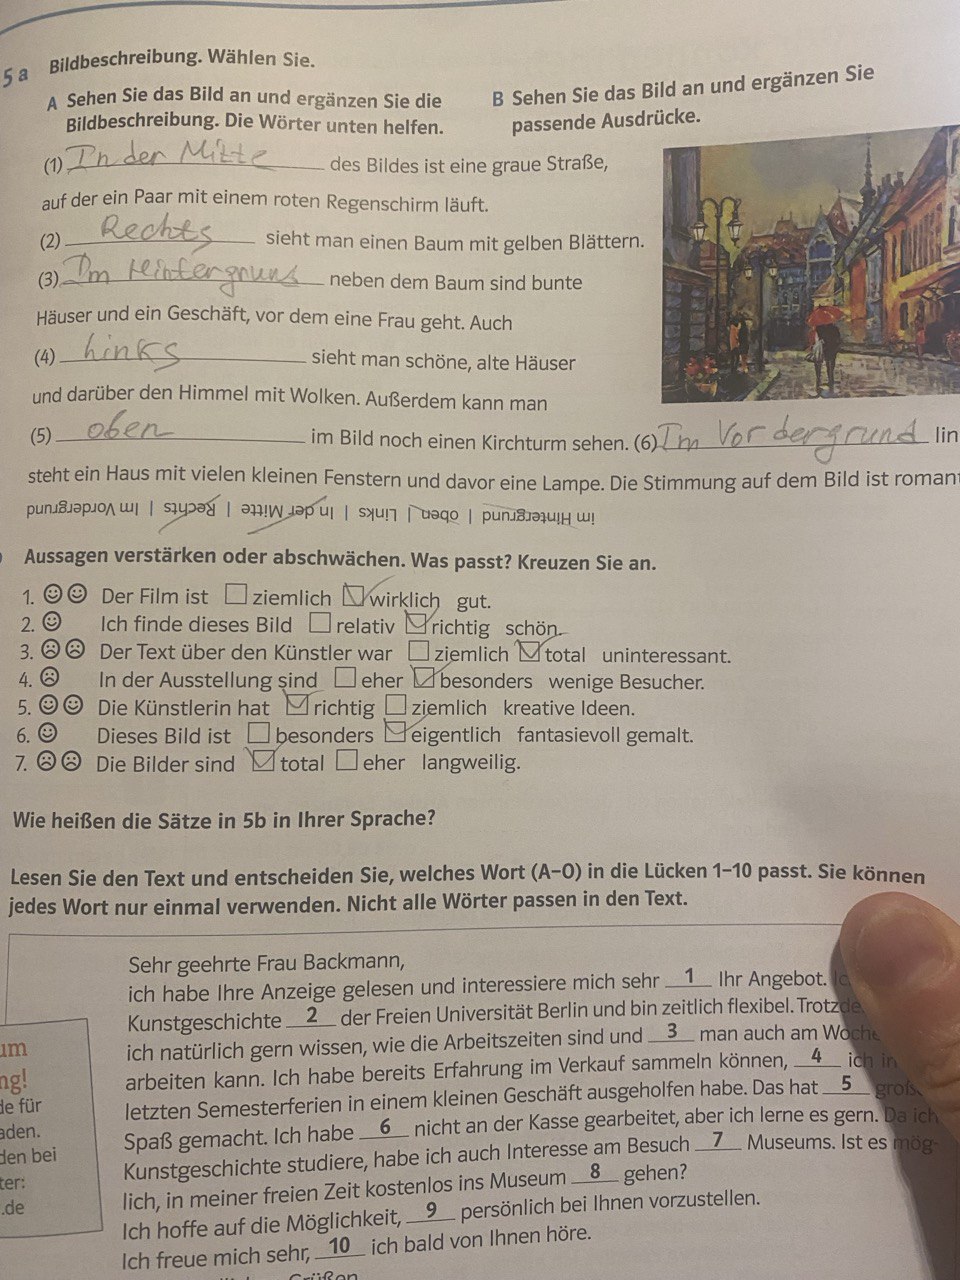 5 a Bildbeschreibung. Wählen Sie.
A Sehen Sie das Bild an und ergänzen Sie die
Bildbeschreibung. Die Wörter unten helfen.
B Sehen Sie das Bild an und ergänzen Sie
passende Ausdrücke.
(1) In der Mitte des Bildes ist eine graue Straße,
auf der ein Paar mit einem roten Regenschirm läuft.
(2) Rechts sieht man einen Baum mit gelben Blättern.
(3) Im Hintergruns neben dem Baum sind bunte
Häuser und ein Geschäft, vor dem eine Frau geht. Auch
(4) Links sieht man schöne, alte Häuser
und darüber den Himmel mit Wolken. Außerdem kann man
(5) oben im Bild noch einen Kirchturm sehen. (6) Im Vordergrund lin
steht ein Haus mit vielen kleinen Fenstern und davor eine Lampe. Die Stimmung auf dem Bild ist roman
im Hintergrund | oben | Links | In der Mitte | Rechts | Im Vordergrund
Aussagen verstärken oder abschwächen. Was passt? Kreuzen Sie an.
1. Der Film ist ziemlich wirklich gut.
2. Ich finde dieses Bild relativ richtig schön.
3. Der Text über den Künstler war ziemlich total uninteressant.
4. In der Ausstellung sind eher besonders wenige Besucher.
5. Die Künstlerin hat richtig ziemlich kreative Ideen.
6. Dieses Bild ist besonders eigentlich fantasievoll gemalt.
7. Die Bilder sind total eher langweilig.
Wie heißen die Sätze in 5b in Ihrer Sprache?
Lesen Sie den Text und entscheiden Sie, welches Wort (A–O) in die Lücken 1–10 passt. Sie können
jedes Wort nur einmal verwenden. Nicht alle Wörter passen in den Text.
Sehr geehrte Frau Backmann,
ich habe Ihre Anzeige gelesen und interessiere mich sehr 1 Ihr Angebot.
Kunstgeschichte 2 der Freien Universität Berlin und bin zeitlich flexibel. Trotzde
ich natürlich gern wissen, wie die Arbeitszeiten sind und 3 man auch am Woche
arbeiten kann. Ich habe bereits Erfahrung im Verkauf sammeln können, 4 ich in
letzten Semesterferien in einem kleinen Geschäft ausgeholfen habe. Das hat 5 große
Spaß gemacht. Ich habe 6 nicht an der Kasse gearbeitet, aber ich lerne es gern. Da ich
Kunstgeschichte studiere, habe ich auch Interesse am Besuch 7 Museums. Ist es mög-
lich, in meiner freien Zeit kostenlos ins Museum 8 gehen?
Ich hoffe auf die Möglichkeit, 9 persönlich bei Ihnen vorzustellen.
Ich freue mich sehr, 10 ich bald von Ihnen höre.
Grüßen
um
ng!
de für
aden.
den bei
ter:
.de